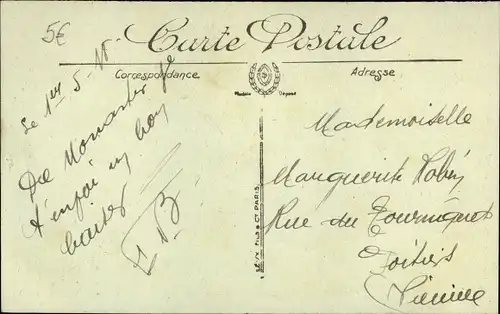 5€
Carte Postale
Correspondance
Adresse
Modèle Déposé
Le 1er 5-18-
De Monastir je
t'envoi un bon
baiser
LÉVY FILS & Cie PARIS.
Mademoiselle
Marguerite Robin
Rue du Tourniquet
Poitiers
Vienne